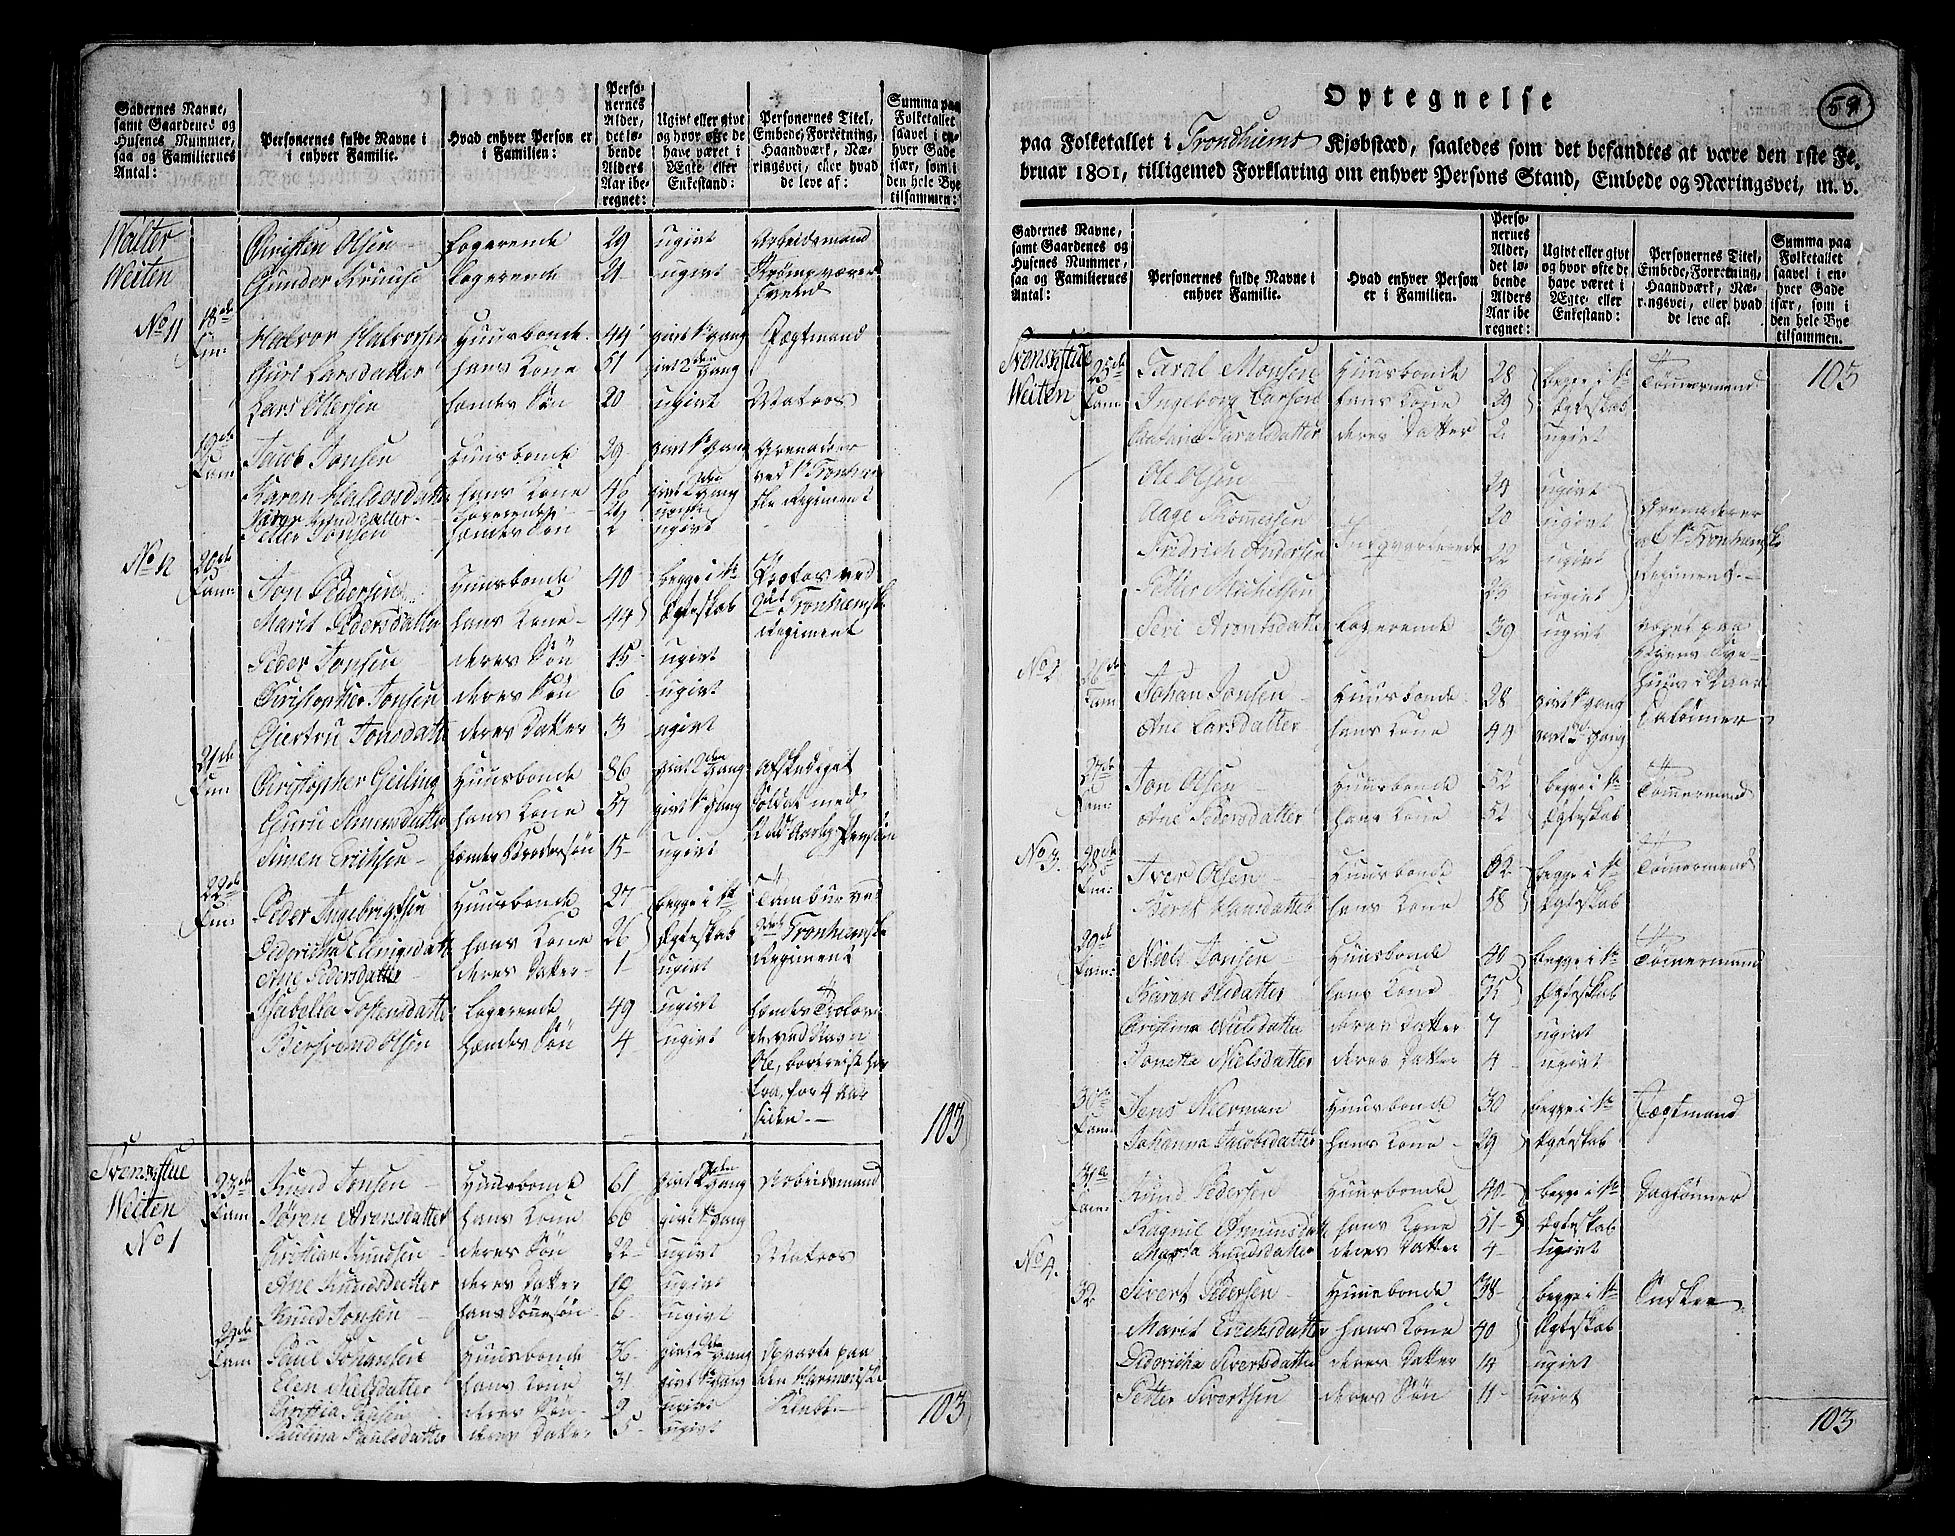 Gadernes Navne,
samt Gaardenes og
Husenes Nummer,
saa og Familiernes
Antal:
Personernes fulde Navne i
i enhver Familie.
Hvad enhver Person er
i Familien:
Perso-
nernes
Alder,
det lø-
bende
Alders
Aar ibe-
regnet:
Ugivt eller givt
og hvor ofte de
have været i
Ægte- eller
Enkestand:
Personernes Titel,
Embede, Forretning,
Haandværk, Næ-
ringsvei, eller hvad
de leve af:
Summa paa
Folketallet
saavel i en-
hver Gade
især, som i
den hele Bye
tilsammen:
Walter Christen Olsen Logerende 29 ugivt Arbeidsmand
Weiten Gunder Kruuse Logerende 21 ugivt Strømpevæver
Svend
No 11 18de Fam: Halvor Halvorsen Huusbonde 44 givt 1te gang Fragtmand
Guri Larsdatter hans Kone 51 givt 2den gang
Lars Ottersen hendes Søn 20 ugivt Matros
19de Fam: Jacob Jonsen Huusbonde 29 givt 1te gang Grenadeer
ved 1te Tronhiem-
ske Regiment
Karen hans Kone 46 givt 2den gang
Logerende
Petter Jonsen hendes Søn 2 ugivt
No 12 20de Fam: Jon Pedersen Huusbonde 40 begge i 1te
Marit Pedersdatter hans Kone 44 Egteskab 2det Tronhiemske
Regiment
Peder Jonsen deres Søn 15 ugivt
Christopher Jonsen deres Søn 6 ugivt
Giertru Jonsdatter deres Datter 3 ugivt
21de Fam: Christopher Geiling Huusbonde 86 givt 2den gang Afskediget
Guru Simensdatter hans Kone 57 givt 1te gang Soldat med
Simen Erichsen 15 ugivt
22de Fam: Peder Ingebrigtsen Huusbonde 27 begge i 1te Tambur ved
hans Kone 26 Egteskab 2det Tronhiemske
Ane Pedersdatter deres Datter 1 ugivt Regiment
Isabella Tostensdatter Logerende 49 ugivt hendes Trolove-
Bersvend Olsen hendes Søn 4 ugivt de ved Navn
Ole, bortreiste her
fra, for 4 Aar
siden.
103
Svenskstue 23de Fam: Knud Jonsen Huusbonde 61 givt 2den gang Arbeidsmand
Weiten Søren Arensdatter hans Kone 66 givt 1te gang
No 1 Kristian Knudsen deres Søn 22 ugivt Matros
Ane Knudsdatter deres Datter 12 ugivt
Knud Jonsen hans Sønnesøn 6 ugivt
24de Fam: Paul Johansen Huusbonde 36 givt 2den gang Opvarte paa
Elen Nielsdatter hans Kone 31 givt 1te gang den Harmoniske
deres Søn 9 ugivt Klub.
Paulina Paulsdatter deres Datter 5 ugivt
103
59
Optegnelse
paa Folketallet i Trondhiems Kjøbstæd, saaledes som det befandtes at være den 1ste Fe-
bruar 1801, tilligemed Forklaring om enhver Persons Stand, Embede og Næringsvei, m. v.
Gadernes Navne,
samt Gaardenes og
Husenes Nummer,
saa og Familiernes
Antal:
Personernes fulde Navne i
enhver Familie.
Hvad enhver Person
er i Familien.
Perso-
nernes
Alder,
det lø-
bende
Alders
Aar ibe-
regnet:
Ugivt eller givt
og hvor ofte de
have været i
Ægte- eller
Enkestand:
Personernes Titel,
Embede, Forretning,
Haandværk, Næ-
ringsvei, eller hvad
de leve af.
Summa paa
Folketallet
saavel i en-
hver Gade
især, som i
den hele Bye
tilsammen.
Svenskstue 25de Fam: Taral Monsen Huusbonde 28 begge i 1te Tømmermand 103
Weiten Ingeborg Larsen hans Kone 39 Egteskab
Taralsdatter deres Datter 2 ugivt
Ole Olsen 24 ugivt
Aage Thommesen 20 ugivt Grenaderer
Fridrich Andersen Indqvarterede 22 ugivt af 1te Tronhiemske
Petter Michelsen 23 ugivt Regiment.
Seri Arentsdatter Logerende 39 ugivt
No 2 26de Fam: Johan Jonsen Huusbonde 28 givt 1te gang
Ane Larsdatter hans Kone 44 givt 2den gang
27de Fam: Jon Olsen Huusbonde 52 begge i 1te Tømmermand
Ane Pedersdatter hans Kone 52 Egteskab
No 3. 28de Fam: Iver Olsen Huusbonde 62 begge i 1te Tømmermand
Berit Hansdatter hans Kone 58 Egteskab
29de Fam: Niels Jonsen Huusbonde 40 begge i 1te Tømmermand
Karen hans Kone 35 Egteskab
Christina Nielsdatter deres Datter 7 ugivt
Jonetta Nielsdatter deres Datter 4 ugivt
30te Fam: Jens Nierman Huusbonde 30 begge i 1te Fragtmand
Johanna Jacobsdatter hans Kone 29 Egteskab
31te Fam: Knud Pedersen Huusbonde 40 begge i 1te Daglønner
Ragnil Amunsdatter hans Kone 51 Egteskab
Knudsdatter deres Datter 4 ugivt
No 4. 32 Sivert Pedersen Huusbonde 38 begge i 1te
Marit Erichsdatter hans Kone 40 Egteskab
Didericha Sivertsdatter deres Datter 14 ugivt
Petter Sivertsen deres Søn 11 ugivt
103